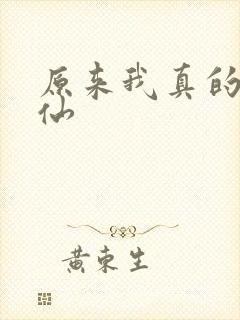 原来我真的
仙
黄东生